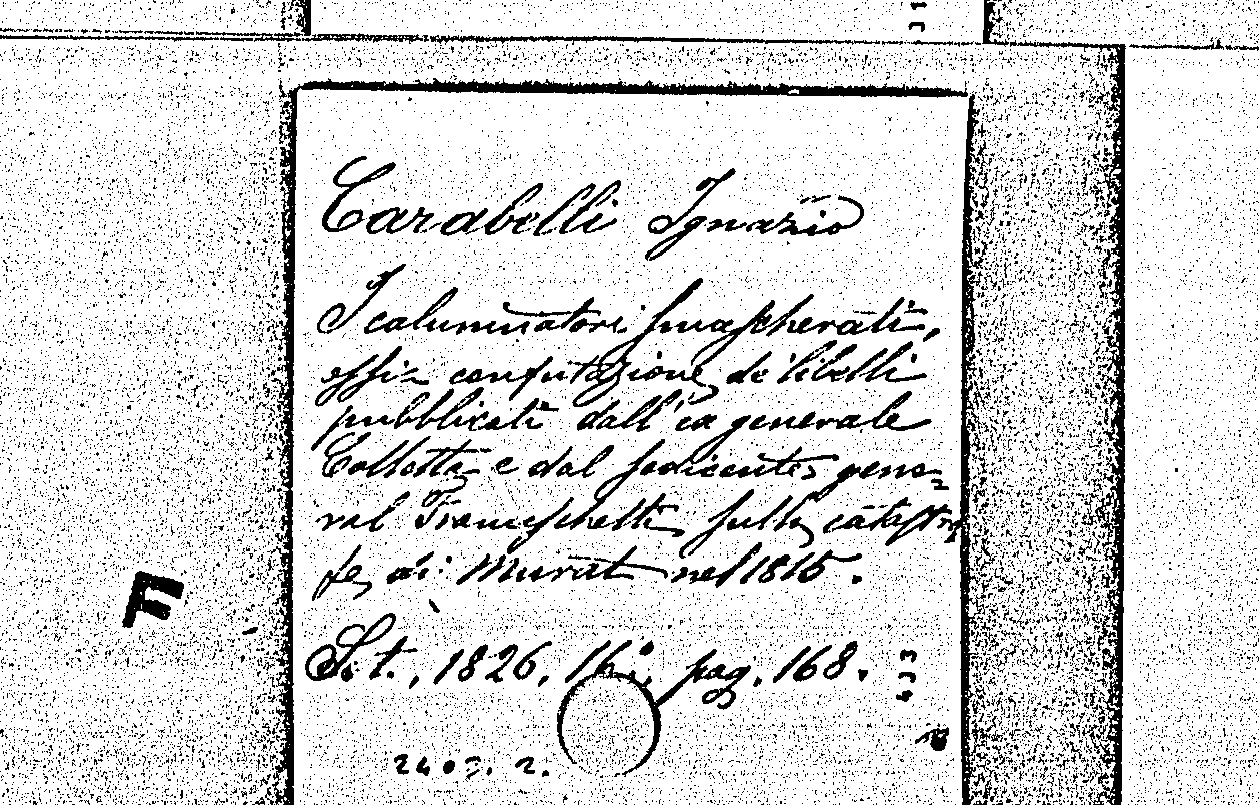 Carabelli Ignazio
I calunniatori smascherati,
ossia confutazione de' libelli
pubblicati dall' ex generale
Colletta e dal sedicente gene=
ral Franceschetti sulla catastro
fe di Murat nel 1815.
S. t., 1826, 16°., pag. 168.
F